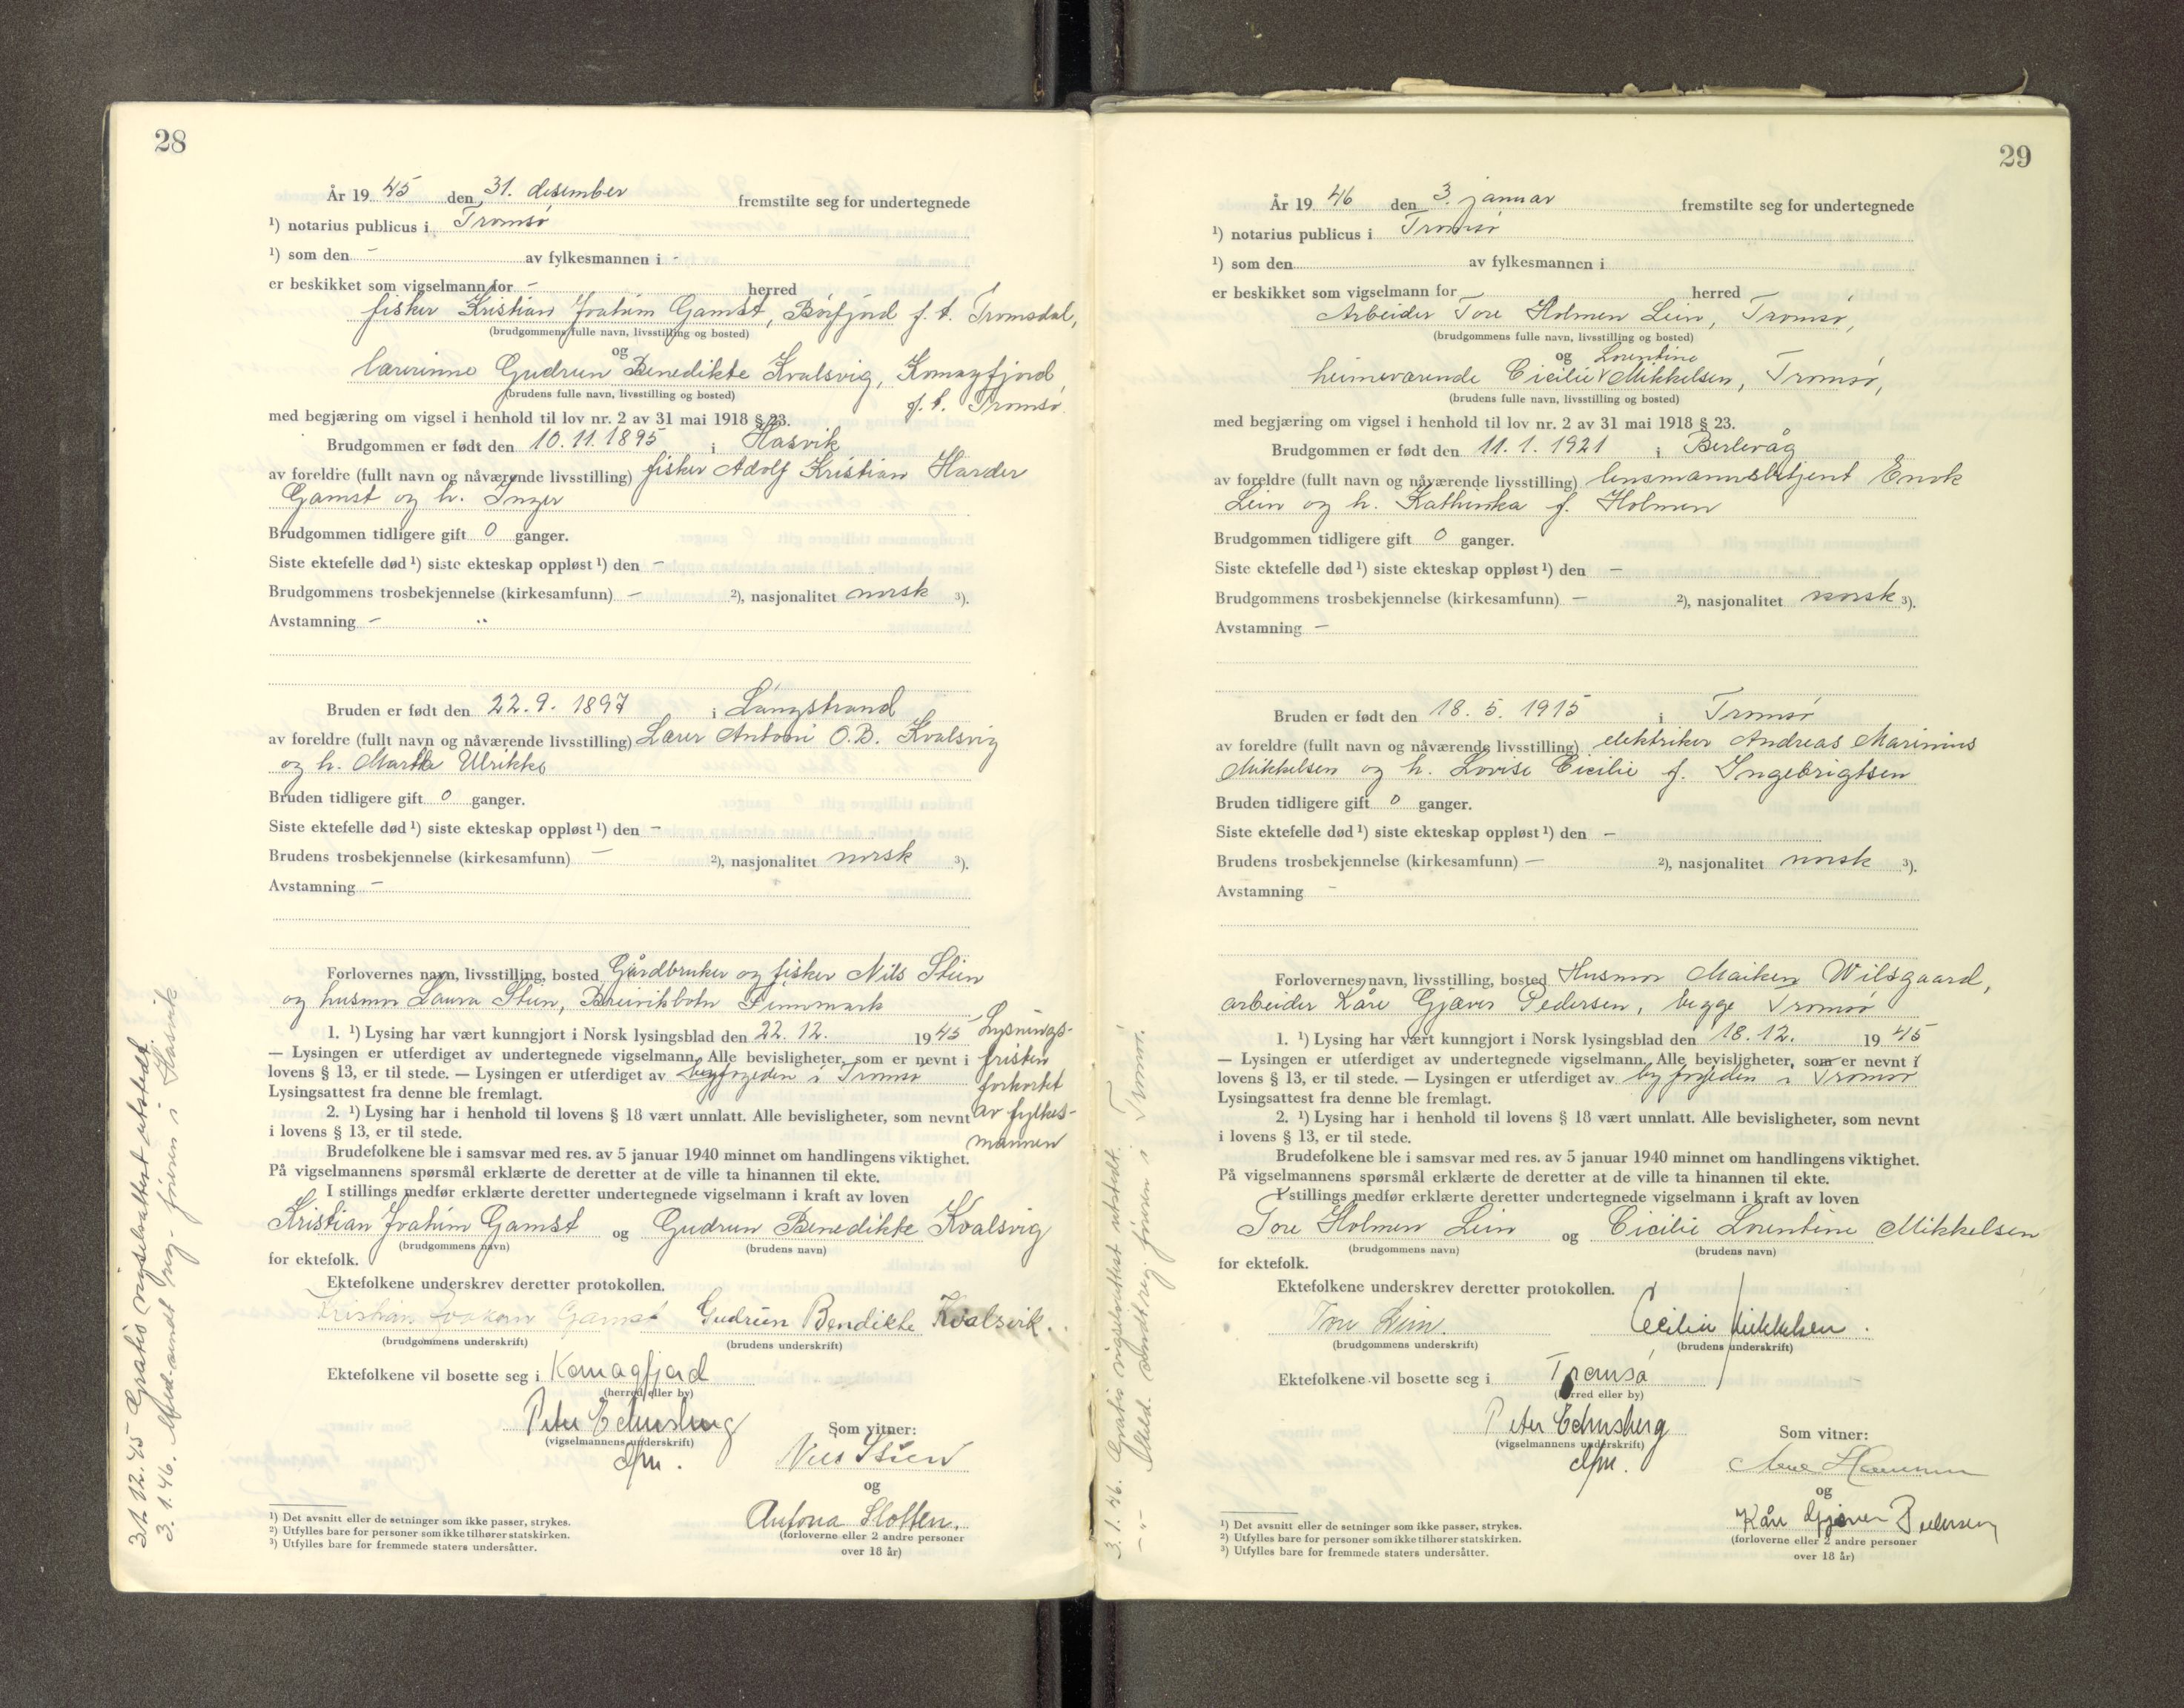 28
År 19 45 den 31. desember fremstilte seg for undertegnede
¹) notarius publicus i Tromsø
¹) som den - av fylkesmannen i -
er beskikket som vigselmann for - herred
fisker Kristian Joakim Gamst, Børfjord f. t. Tromsdal,
(brudgommens fulle navn, livsstilling og bosted)
og
lærerinne Gudrun Benedikte Kvalsvig, Komagfjord,
(brudens fulle navn, livsstilling og bosted) f. t. Tromsø.
med begjæring om vigsel i henhold til lov nr. 2 av 31 mai 1918 § 23.
Brudgommen er født den 10.11.1895 i Hasvik
av foreldre (fullt navn og nåværende livsstilling) fisker Adolf Kristian Harder
Gamst og h. Inger
Brudgommen tidligere gift 0 ganger.
Siste ektefelle død ¹) siste ekteskap oppløst ¹) den -
Brudgommens trosbekjennelse (kirkesamfunn) - ²), nasjonalitet norsk ³).
Avstamning -
Bruden er født den 22.9.1897 i Langstrand
av foreldre (fullt navn og nåværende livsstilling) Lærer Antoni O.B. Kvalsvig
og h. Marthe Ulrikke
Bruden tidligere gift 0 ganger.
Siste ektefelle død ¹) siste ekteskap oppløst ¹) den -
Brudens trosbekjennelse (kirkesamfunn) - ²), nasjonalitet norsk ³).
Avstamning -
Forlovernes navn, livsstilling, bosted Gårdbruker og fisker Nils Stien
og husmor Laura Stien, Breivikbotn Finnmark
1. ¹) Lysing har vært kunngjort i Norsk lysingsblad den 22.12. 19 45
— Lysingen er utferdiget av undertegnede vigselmann. Alle bevisligheter, som er nevnt i
lovens § 13, er til stede. — Lysingen er utferdiget av byfogden i Tromsø
Lysingsattest fra denne ble fremlagt.
2. ¹) Lysing har i henhold til lovens § 18 vært unnlatt. Alle bevisligheter, som nevnt
i lovens § 13, er til stede.
Lysnings-
fristen
forkortet
av fylkes-
mannen
Brudefolkene ble i samsvar med res. av 5 januar 1940 minnet om handlingens viktighet.
På vigselmannens spørsmål erklærte de deretter at de ville ta hinannen til ekte.
I stillings medfør erklærte deretter undertegnede vigselmann i kraft av loven
Kristian Joakim Gamst og Gudrun Benedikte Kvalsvig
(brudgommens navn) (brudens navn)
for ektefolk.
Ektefolkene underskrev deretter protokollen.
Kristian Joakim Gamst Gudrun Bendikte Kvalsvik.
(brudgommens underskrift) (brudens underskrift)
Ektefolkene vil bosette seg i Komagfjord
(herred eller by)
Peter
(vigselmannens underskrift)
Som vitner:
Nils Stien
og
Antona Slotten.
(forloverne eller 2 andre personer
over 18 år)
¹) Det avsnitt eller de setninger som ikke passer, strykes.
²) Utfylles bare for personer som ikke tilhører statskirken.
³) Utfylles bare for fremmede staters undersåtter.
31.12.45 Gratis vigselsattest utstedt.
3.1.46. Meld. sendt reg.-føreren i Hasvik
29
År 19 46 den 3. januar fremstilte seg for undertegnede
¹) notarius publicus i Tromsø
¹) som den av fylkesmannen i
er beskikket som vigselmann for herred
Arbeider Tore Holmen Lein, Tromsø,
(brudgommens fulle navn, livsstilling og bosted)
og Lorentine
heimeværende Cicilie Mikkelsen, Tromsø,
(brudens fulle navn, livsstilling og bosted)
med begjæring om vigsel i henhold til lov nr. 2 av 31 mai 1918 § 23.
Brudgommen er født den 11.1.1921 i Berlevåg
av foreldre (fullt navn og nåværende livsstilling) lensmannsbetjent Enok
Lein og h. Kathinka f. Holmen
Brudgommen tidligere gift 0 ganger.
Siste ektefelle død ¹) siste ekteskap oppløst ¹) den -
Brudgommens trosbekjennelse (kirkesamfunn) - ²), nasjonalitet norsk ³).
Avstamning -
Bruden er født den 18.5.1915 i Tromsø
av foreldre (fullt navn og nåværende livsstilling) elektriker Andreas Marinius
Mikkelsen og h. Lovise Cicilie f. Ingebrigtsen
Bruden tidligere gift 0 ganger.
Siste ektefelle død ¹) siste ekteskap oppløst ¹) den -
Brudens trosbekjennelse (kirkesamfunn) - ²), nasjonalitet norsk ³).
Avstamning -
Forlovernes navn, livsstilling, bosted Husmor Maiken Wilsgaard,
arbeider Kåre Gjæver Pedersen, begge Tromsø
1. ¹) Lysing har vært kunngjort i Norsk lysingsblad den 18.12. 19 45
— Lysingen er utferdiget av undertegnede vigselmann. Alle bevisligheter, som er nevnt i
lovens § 13, er til stede. — Lysingen er utferdiget av byfogden i Tromsø
Lysingsattest fra denne ble fremlagt.
2. ¹) Lysing har i henhold til lovens § 18 vært unnlatt. Alle bevisligheter, som nevnt
i lovens § 13, er til stede.
Brudefolkene ble i samsvar med res. av 5 januar 1940 minnet om handlingens viktighet.
På vigselmannens spørsmål erklærte de deretter at de ville ta hinannen til ekte.
I stillings medfør erklærte deretter undertegnede vigselmann i kraft av loven
Tore Holmen Lein og Cicilie Lorentine Mikkelsen
(brudgommens navn) (brudens navn)
for ektefolk.
Ektefolkene underskrev deretter protokollen.
Tore Lein. Cecilie Mikkelsen.
(brudgommens underskrift) (brudens underskrift)
Ektefolkene vil bosette seg i Tromsø
(herred eller by)
Peter
(vigselmannens underskrift)
Som vitner:
og
Kåre Gjæver Pedersen
(forloverne eller 2 andre personer
over 18 år)
¹) Det avsnitt eller de setninger som ikke passer, strykes.
²) Utfylles bare for personer som ikke tilhører statskirken.
³) Utfylles bare for fremmede staters undersåtter.
3.1.46. Gratis vigselsattest utstedt.
-"- Meld. sendt reg.føreren i Tromsø.